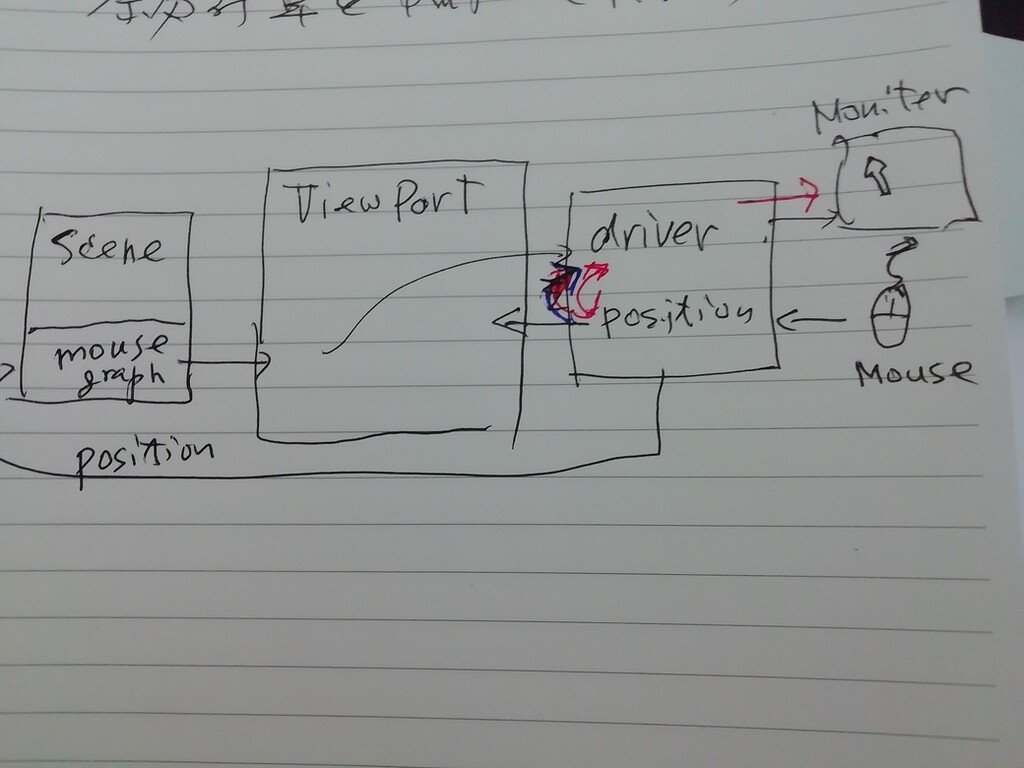 Moniter
View Port
Scene
driver
position
mouse
graph
Mouse
position